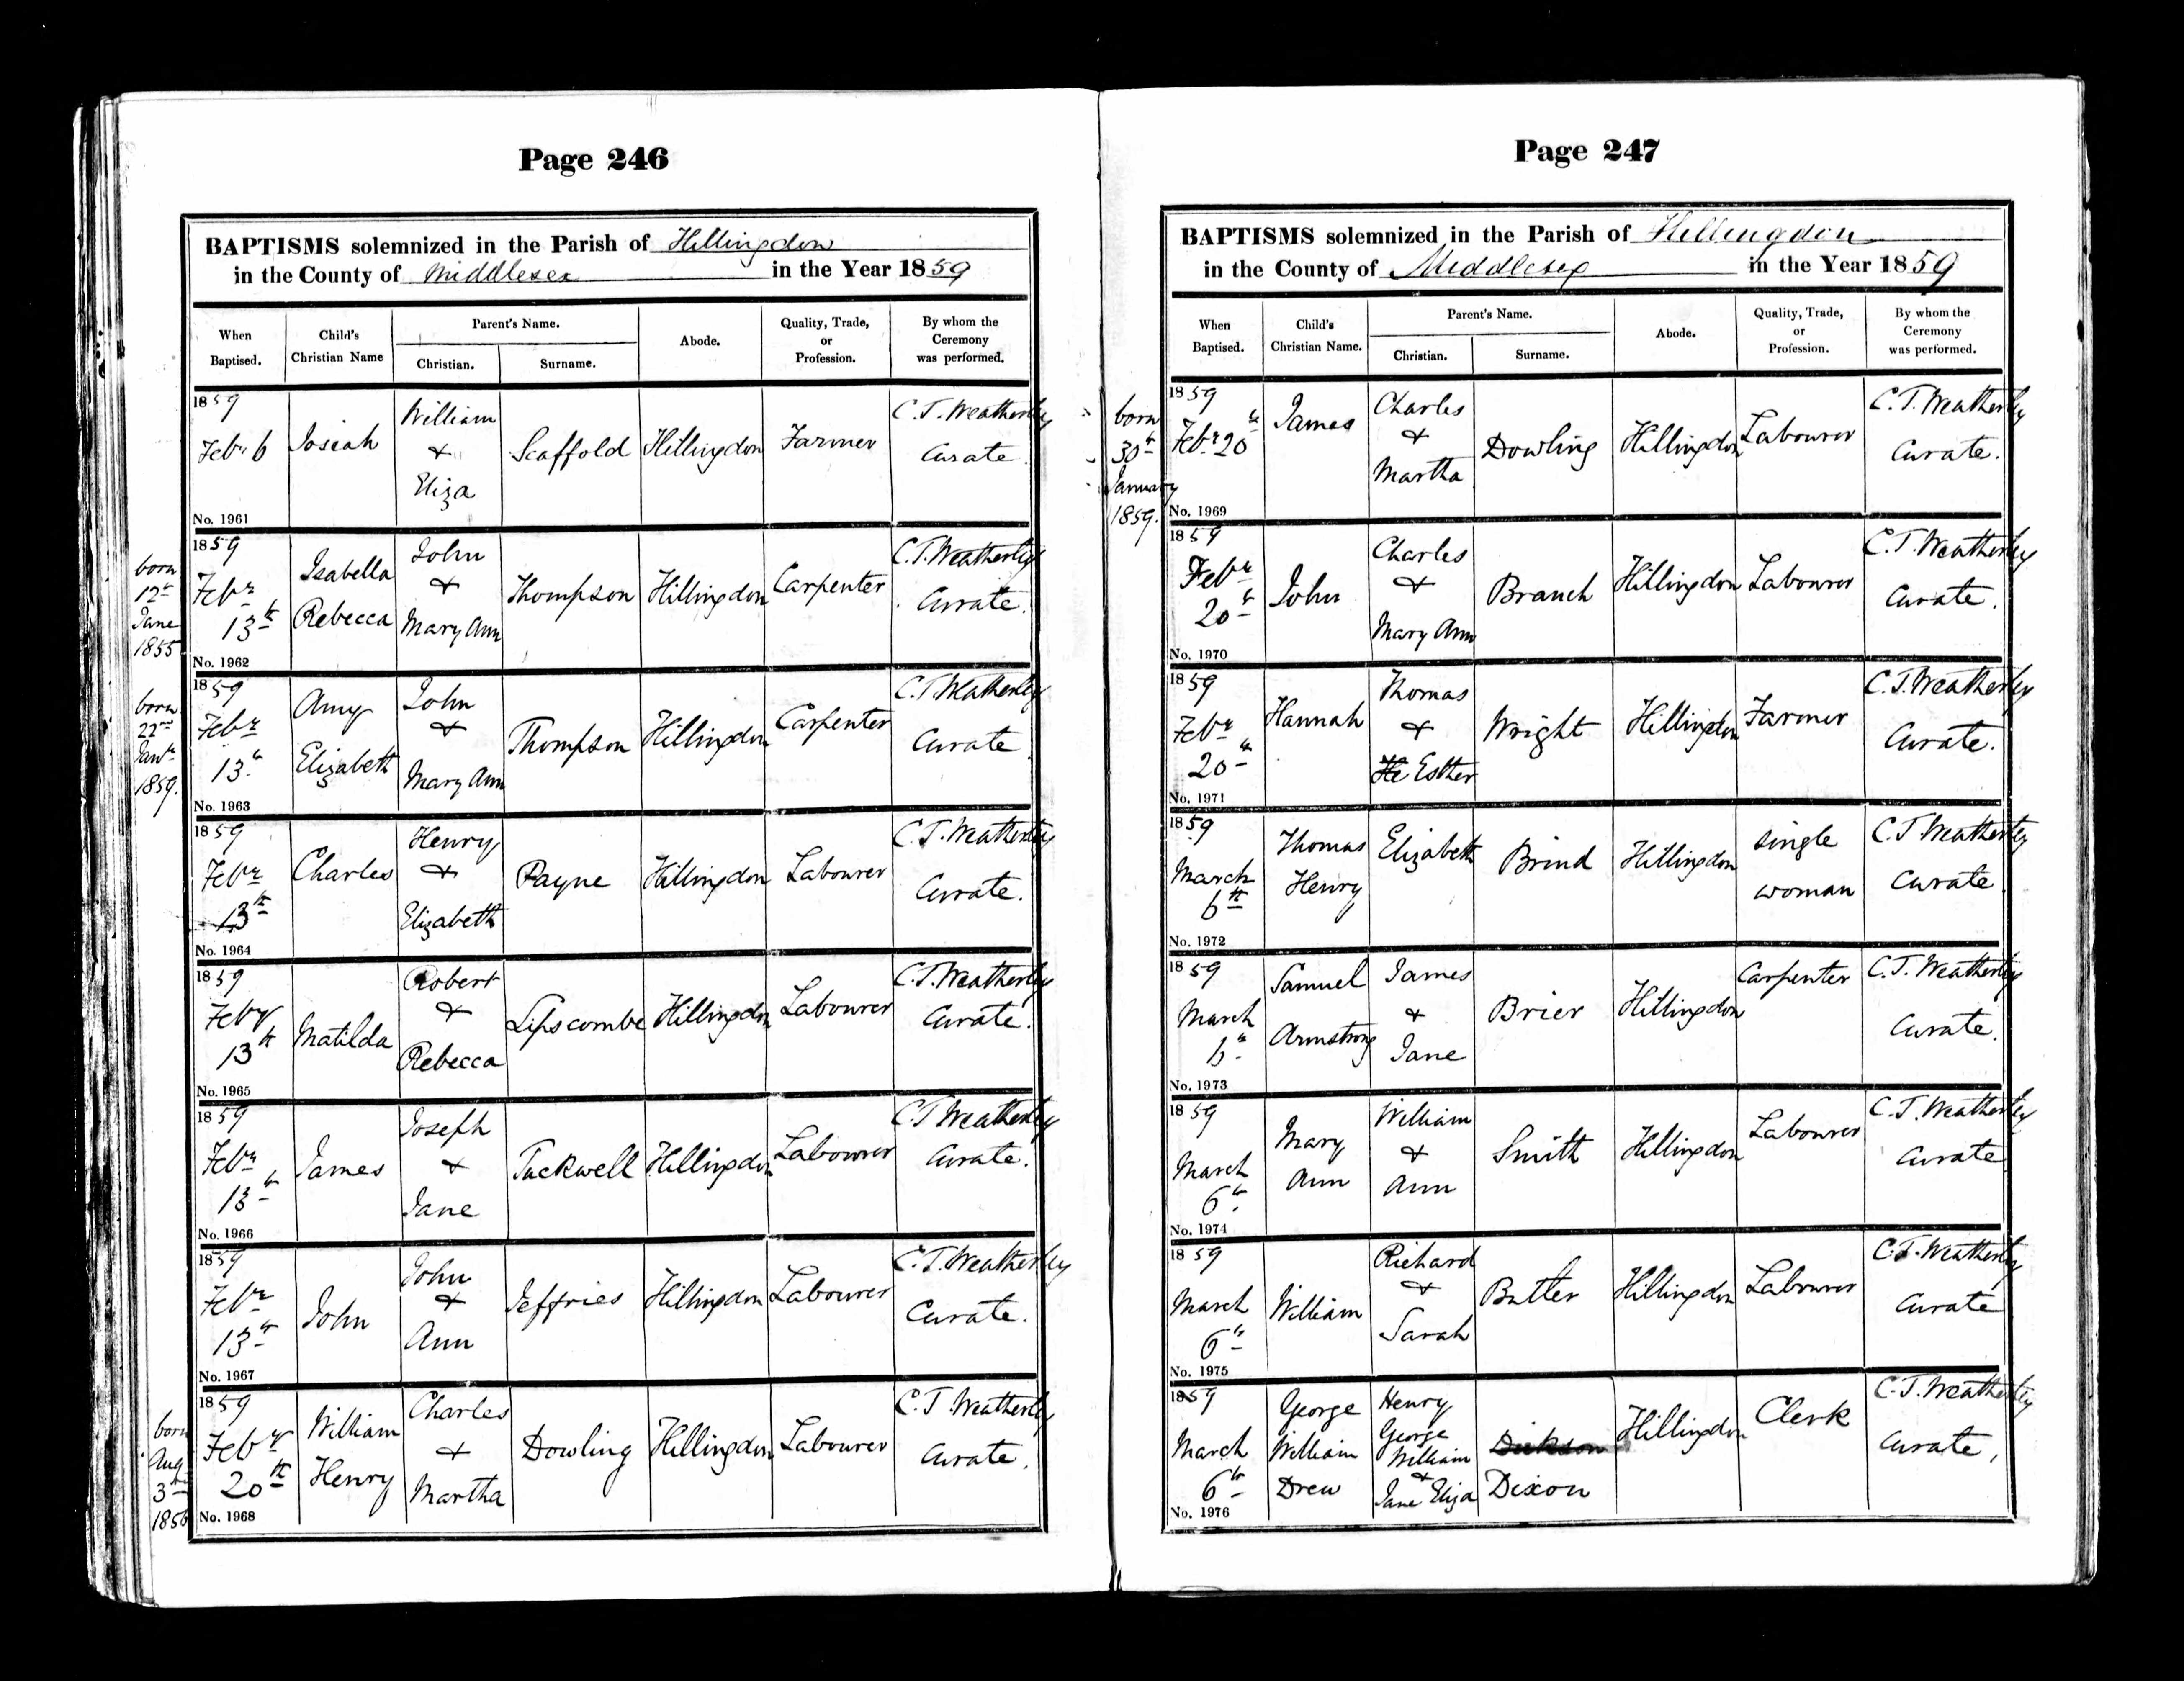 Page 246
BAPTISMS solemnized in the Parish of Hillingdon
in the County of Middlesex in the Year 1859
When Baptised.
Child's Christian Name
Parent's Name.
Christian.
Surname.
Abode.
Quality, Trade, or Profession.
By whom the Ceremony was performed.
1859
Febr 6
No. 1961
Josiah
William
&
Eliza
Scaffold
Hillingdon
Farmer
C. T. Weatherley
Curate.
born
12th
June
1855
1859
Febr
13th
No. 1962
Isabella
Rebecca
John
&
Mary Ann
Thompson
Hillingdon
Carpenter
C. T. Weatherley
Curate.
born
22nd
Janr
1859.
1859
Febr
13th
No. 1963
Amy
Elizabeth
John
&
Mary Ann
Thompson
Hillingdon
Carpenter
C. T. Weatherley
Curate
1859
Febr
13th
No. 1964
Charles
Henry
&
Elizabeth
Payne
Hillingdon
Labourer
C. T. Weatherley
Curate.
1859
Feby
13th
No. 1965
Matilda
Robert
&
Rebecca
Lipscombe
Hillingdon
Labourer
C. T. Weatherley
Curate.
1859
Febr
13th
No. 1966
James
Joseph
&
Jane
Tuckwell
Hillingdon
Labourer
C. T. Weatherley
Curate.
1859
Febr
13th
No. 1967
John
John
&
Ann
Jeffries
Hillingdon
Labourer
C. T. Weatherley
Curate.
born
Aug
3rd
1856
1859
Feby
20th
No. 1968
William
Henry
Charles
&
Martha
Dowling
Hillingdon
Labourer
C. T. Weatherley
Curate.
Page 247
BAPTISMS solemnized in the Parish of Hillingdon
in the County of Middlesex in the Year 1859
When Baptised.
Child's Christian Name.
Parent's Name.
Christian.
Surname.
Abode.
Quality, Trade, or Profession.
By whom the Ceremony was performed.
born
30th
January
1859.
1859
Febr 20th
No. 1969
James
Charles
&
Martha
Dowling
Hillingdon
Labourer
C. T. Weatherley
Curate.
1859
Febr
20th
No. 1970
John
Charles
&
Mary Ann
Branch
Hillingdon
Labourer
C. T. Weatherley
Curate.
1859
Febr
20th
No. 1971
Hannah
Thomas
&
He Esther
Wright
Hillingdon
Farmer
C. T. Weatherley
Curate.
1859
March
6th
No. 1972
Thomas
Henry
Elizabeth
Brind
Hillingdon
single
woman
C. T. Weatherley
Curate
1859
March
6th
No. 1973
Samuel
Armstrong
James
&
Jane
Brier
Hillingdon
Carpenter
C. T. Weatherley
Curate.
1859
March
6th
No. 1974
Mary
Ann
William
&
Ann
Smith
Hillingdon
Labourer
C. T. Weatherley
Curate
1859
March
6th
No. 1975
William
Richard
&
Sarah
Butler
Hillingdon
Labourer
C. T. Weatherley
Curate
1859
March
6th
No. 1976
George
William
Drew
Henry
George
William
&
Jane Eliza
Dickson
Dixon
Hillingdon
Clerk
C. T. Weatherley
Curate,